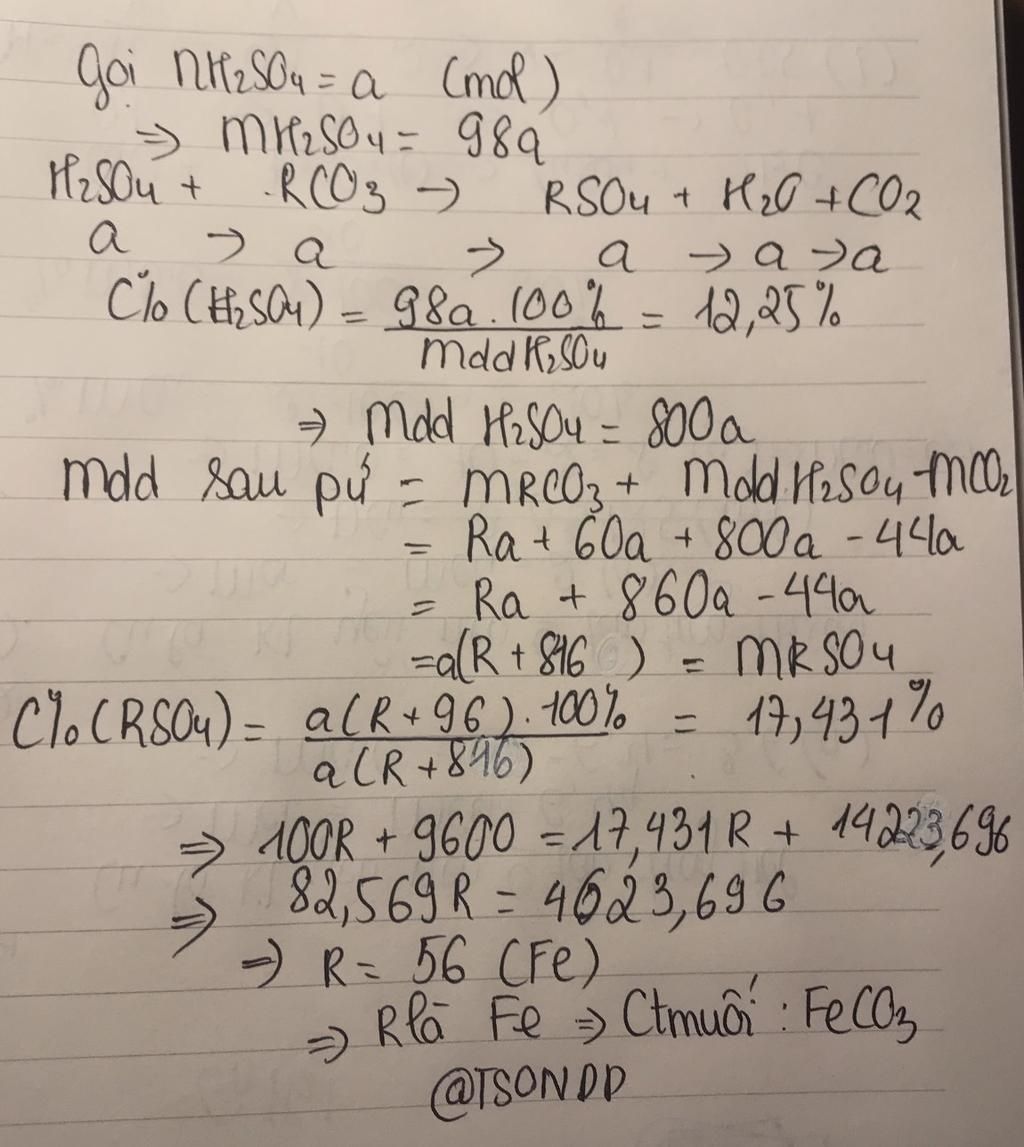 Gọi nH₂SO₄ = a (mol)
⇒ mH₂SO₄ = 98a
H₂SO₄ + RCO₃ → RSO₄ + H₂O + CO₂
a → a → a → a → a
C% (H₂SO₄) = 98a.100% / mddH₂SO₄ = 12,25%
⇒ mdd H₂SO₄ = 800a
mdd sau pứ = mRCO₃ + mddH₂SO₄ - mCO₂
= Ra + 60a + 800a - 44a
= Ra + 860a - 44a
= a(R + 816) = mRSO₄
C% (RSO₄) = a(R + 96).100% / a(R + 816) = 17,431%
⇒ 100R + 9600 = 17,431R + 14223,696
⇒ 82,569R = 4623,696
⇒ R = 56 (Fe)
⇒ R là Fe ⇒ Ctmuối : FeCO₃
@TSONDD